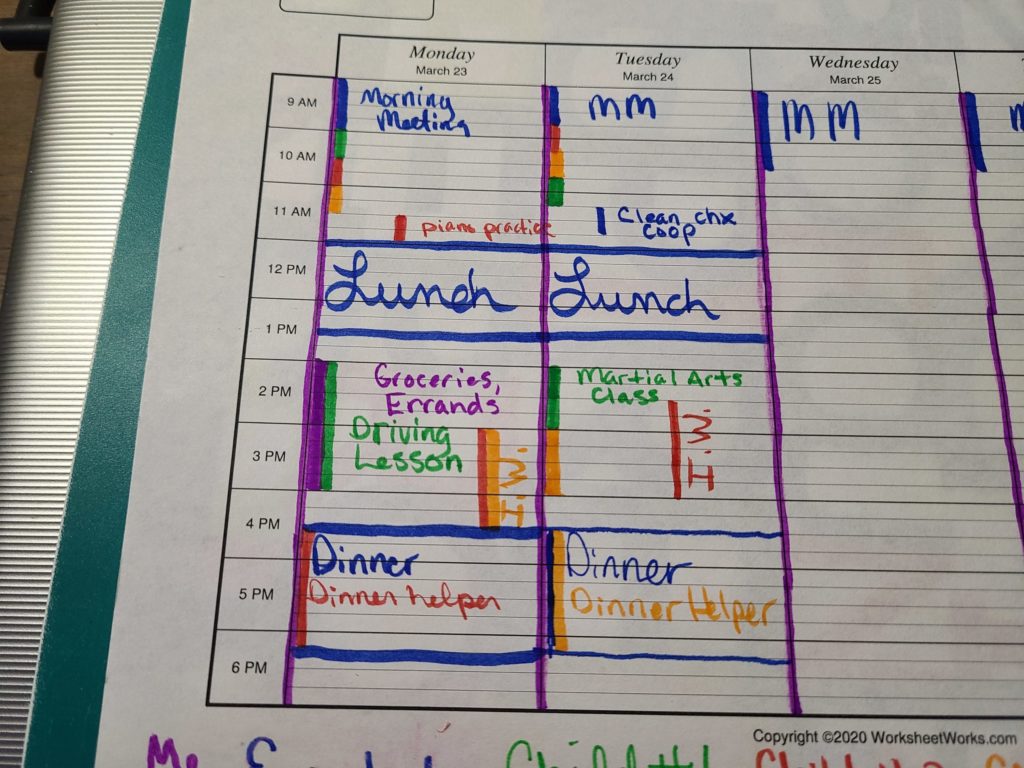 Monday
March 23
Tuesday
March 24
Wednesday
March 25
9 AM
Morning
Meeting
MM
MM
10 AM
11 AM
piano practice
Clean chx
coop
12 PM
Lunch
Lunch
1 PM
2 PM
Groceries,
Errands
Driving
Lesson
Martial Arts
Class
3 PM
4 PM
Dinner
Dinner helper
Dinner
Dinner Helper
5 PM
6 PM
Copyright ©2020 WorksheetWorks.com
Me